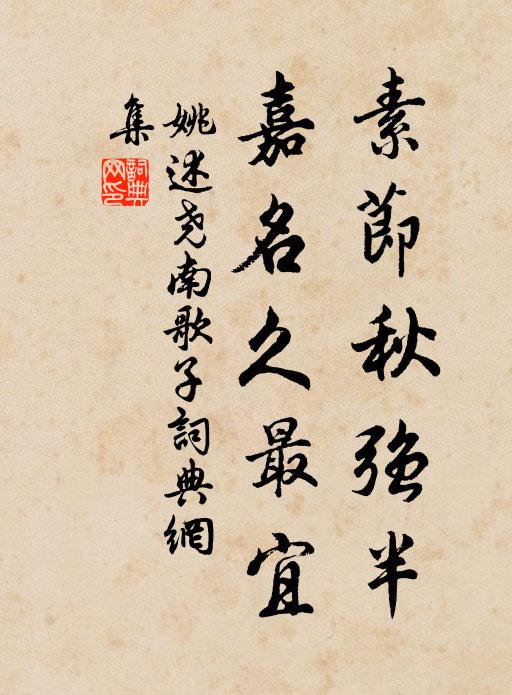 素節秋強半
嘉名久最宜
姚述尧南歌子詞典網
集
詞典
网印